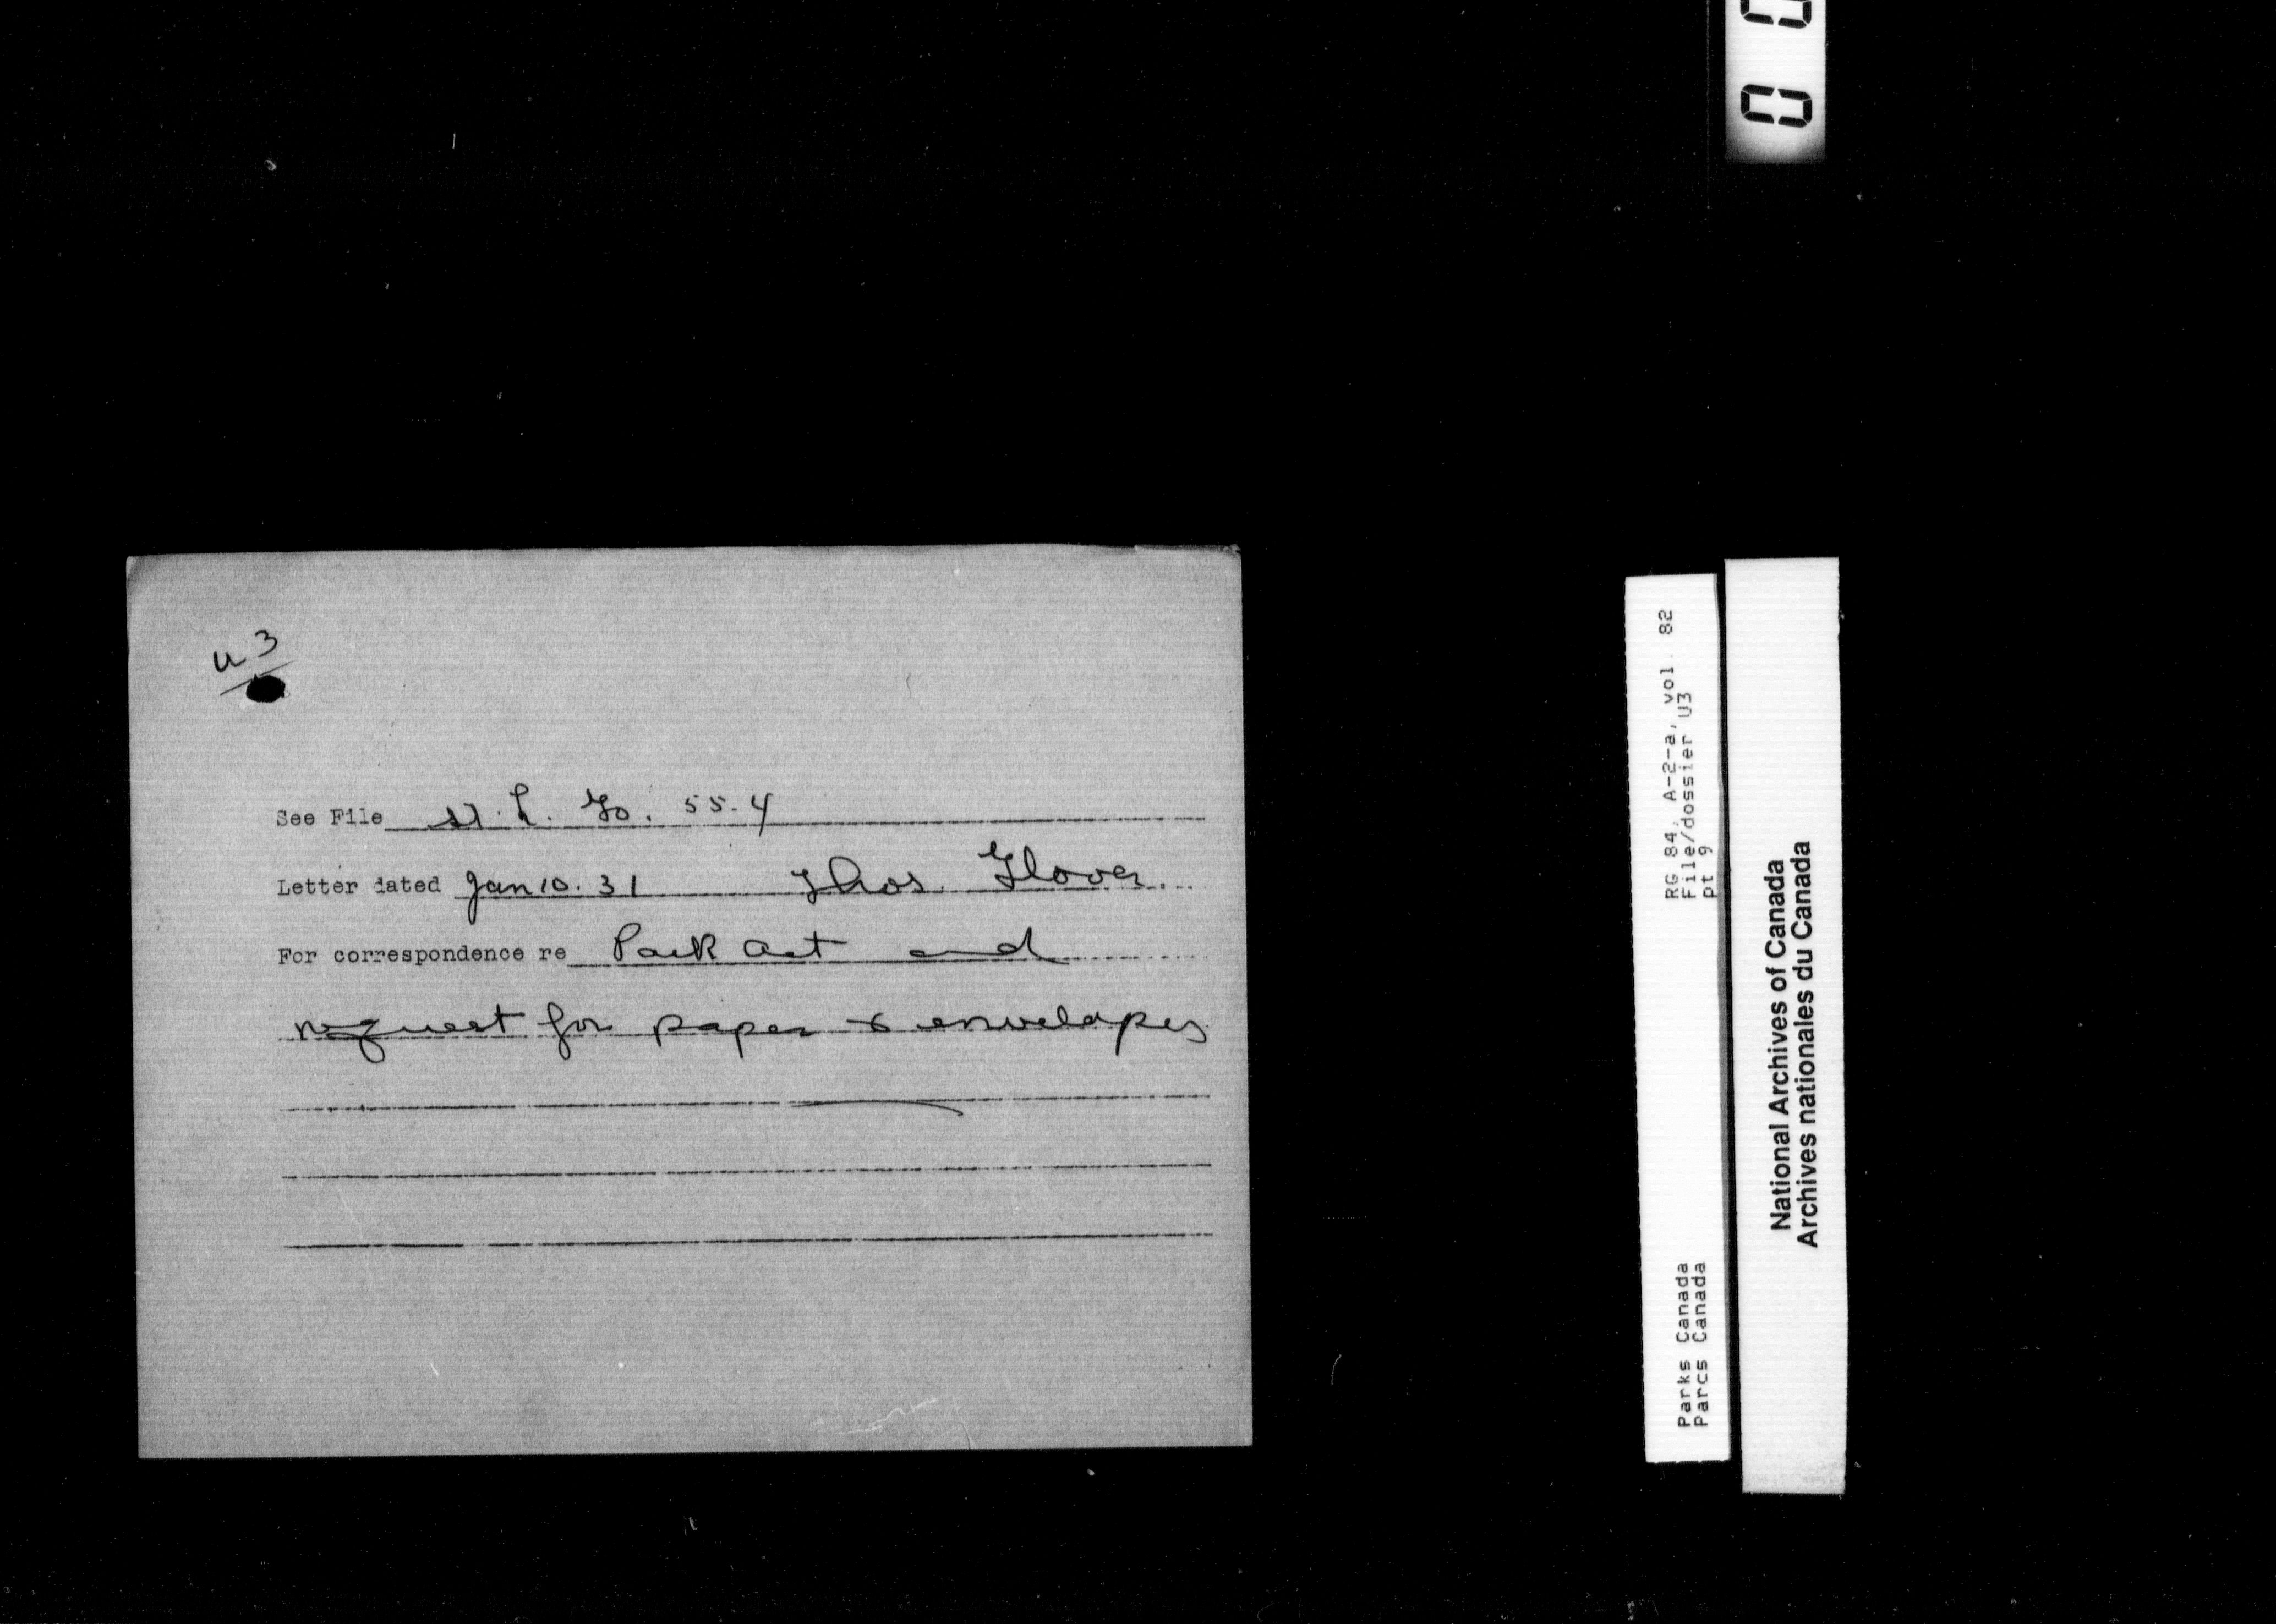 0 0
U3
See File St. L. Is. 55.4
Letter dated Jan 10. 31 Thos. Glover.
For correspondence re Park Act and
request for paper & envelopes
RG 84, A-2-a, vol. 82
File/dossier U3
pt 9
Parks Canada
Parcs Canada
National Archives of Canada
Archives nationales du Canada